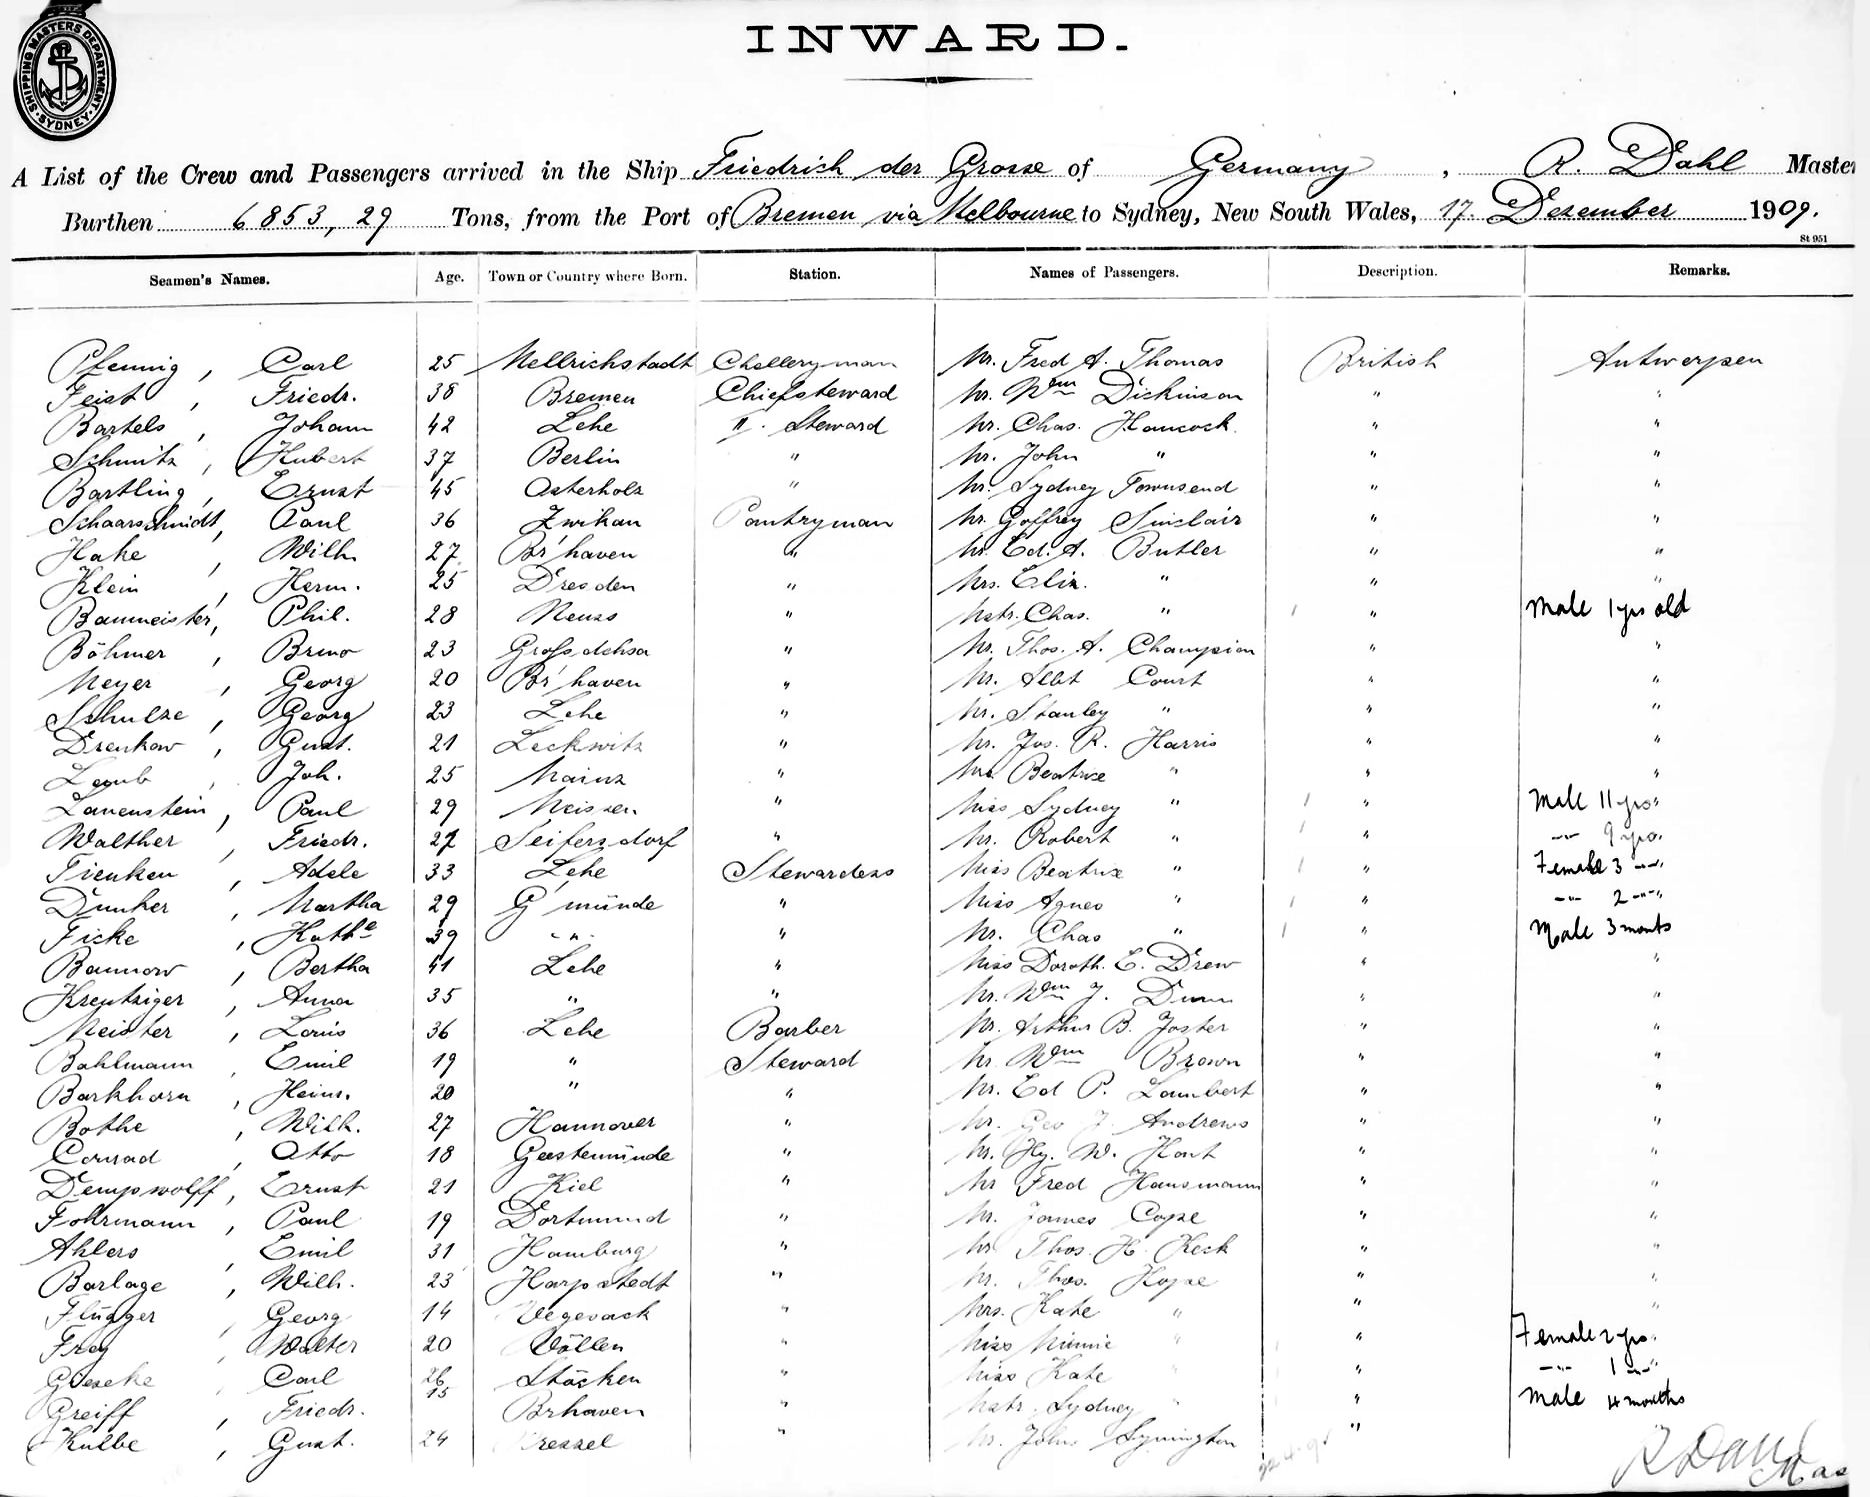 SHIPPING MASTERS DEPARTMENT
SYDNEY
INWARD.
A List of the Crew and Passengers arrived in the Ship Friedrich der Grosse of Germany, R. Dahl Master
Burthen 6853,29 Tons, from the Port of Bremen via Melbourne to Sydney, New South Wales, 17. Dezember 1909.
St 951
Seamen's Names. Age. Town or Country where Born. Station. Names of Passengers. Description. Remarks.
Pfennig, Carl 25 Mellrichstadt Mr. Fred A. Thomas British Antwerpen
Feist, Friedr. 38 Bremen Chiefsteward Mr. Wm Dickinson " "
Bartels, Johann 42 Lehe II. Steward Mr. Chas. Hancock. " "
Schmitz, Hubert 37 Berlin " Mr. John " " "
Bartling, Ernst 45 Osterholz " Mr. Sydney Townsend " "
Schaarschmidt, Paul 36 Zwikau Pantryman Mr. Goffrey Sinclair " "
Hake, Wilh. 27 Br'haven " Mr. Ed. A. Butler " "
Klein, Herm. 25 Dresden " Mrs. Eliz. " " "
Baumeister, Phil. 28 Neuss " Mstr. Chas. " " Male 1 yrs old
Böhmer, Bruno 23 " Mr. Thos. A. Champion " "
Meyer, Georg 20 Br'haven " Mr. Albt Court " "
Schulze, Georg 23 Lehe " Mr. Stanley " " "
Drenkow, Gust. 21 Leckwitz " Mr. Jos. R. Harris " "
Joh. 25 Mainz " Mrs. Beatrice " " "
Lauenstein, Paul 29 Meissen " Miss Sydney " " Male 11 yrs.
Walther, Friedr. 27 Seifersdorf " Mr. Robert " " -"- 9 yrs.
Tienken, Adele 33 Lehe Stewardess Miss Beatrix " " Female 3 -"-
Dunker, Martha 29 G'münde " Miss Agnes " " -"- 2 -"-
Ficke, Kathe 39 -"- " Mr. Chas " " Male 3 monts
Bannow, Bertha 41 Lehe " Miss Doroth. E. Drew " "
Kreutziger, Anna 35 " " Mr. Wm J. Dunn " "
Meister, Louis 36 Lehe Barber Mr. Arthur B. Foster " "
Bahlmann, Emil 19 " Steward Mr. Wm Brown " "
Barkhorn, Heinr. 20 " " Mr. Ed P. Lambert " "
Bothe, Wilh. 27 Hannover " Mr. Geo J. Andrews " "
Conrad, Otto 18 Geestemünde " Mr. Hy. W. Hont " "
Dempwolff, Ernst 21 Kiel " Mr Fred Hansmann " "
Fohrmann, Paul 19 Dortmund " Mr. James Cope " "
Ahlers, Emil 31 Hamburg " Mr Thos. H. Keck " "
Barlage, Wilh. 23 Harpstedt " Mr. Thos. Hope " "
Flügger, Georg 14 Vegesack " Mrs. Kate " " "
Frey, Walter 20 Döllen " Miss Minnie " " Female 2 yrs.
Gieseke, Carl 26 Stöcken " Miss Kate " " -"- 1 -"-
Greiff, Friedr. 15 Brhaven " Mstr. Sydney " " Male 4 months
Kulbe, Gust. 24 Kressel " Mr. John Symington "
R Dahl
Mas